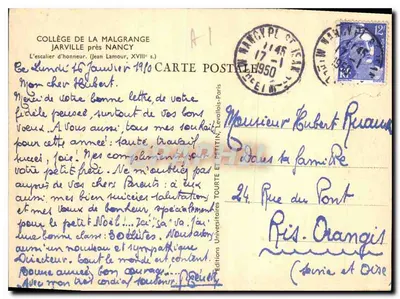 COLLÈGE DE LA MALGRANGE
JARVILLE près NANCY
L'escalier d'honneur. (Jean Lamour, XVIIIe s.)
A 1
CARTE POSTALE
NANCY PL. ST JEAN
17-1
1950
12F
Ce Lundi 16 Janvier 1950
Mon cher Hubert.
Merci de votre bonne lettre, de votre
fidèle pensée, surtout de vos bons
vœux. A vous aussi, tous mes souhaits
pour cette année: santé, travail
succès, joie. Mes compliments pour
votre petit frère. Ne m'oubliez pas
auprès de vos chers Parents: à eux
aussi mes bien sincères salutations
et mes vœux de bonheur, spécialement
pour le petit Noël... Ici, ça va. J'ai
une bonne classe: élèves. Nous avons
aussi un nouveau et sympathique
Directeur. Tout le monde est content.
Bonne année, bon courage...
Avec mon très cordial souvenir.
Editions Universitaires TOURTE et PETITIN, Levallois-Paris
Monsieur Hubert
Dans sa famille
24 Rue du Pont
Ris-Orangis
(Seine et Oise)